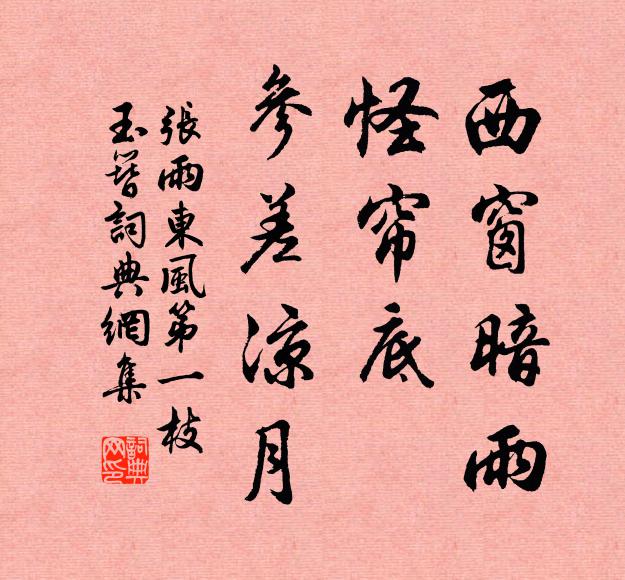 西窗暗雨
怪帘底
參差凉月
張雨東風第一枝
玉簪詞典網集
詞典
网印